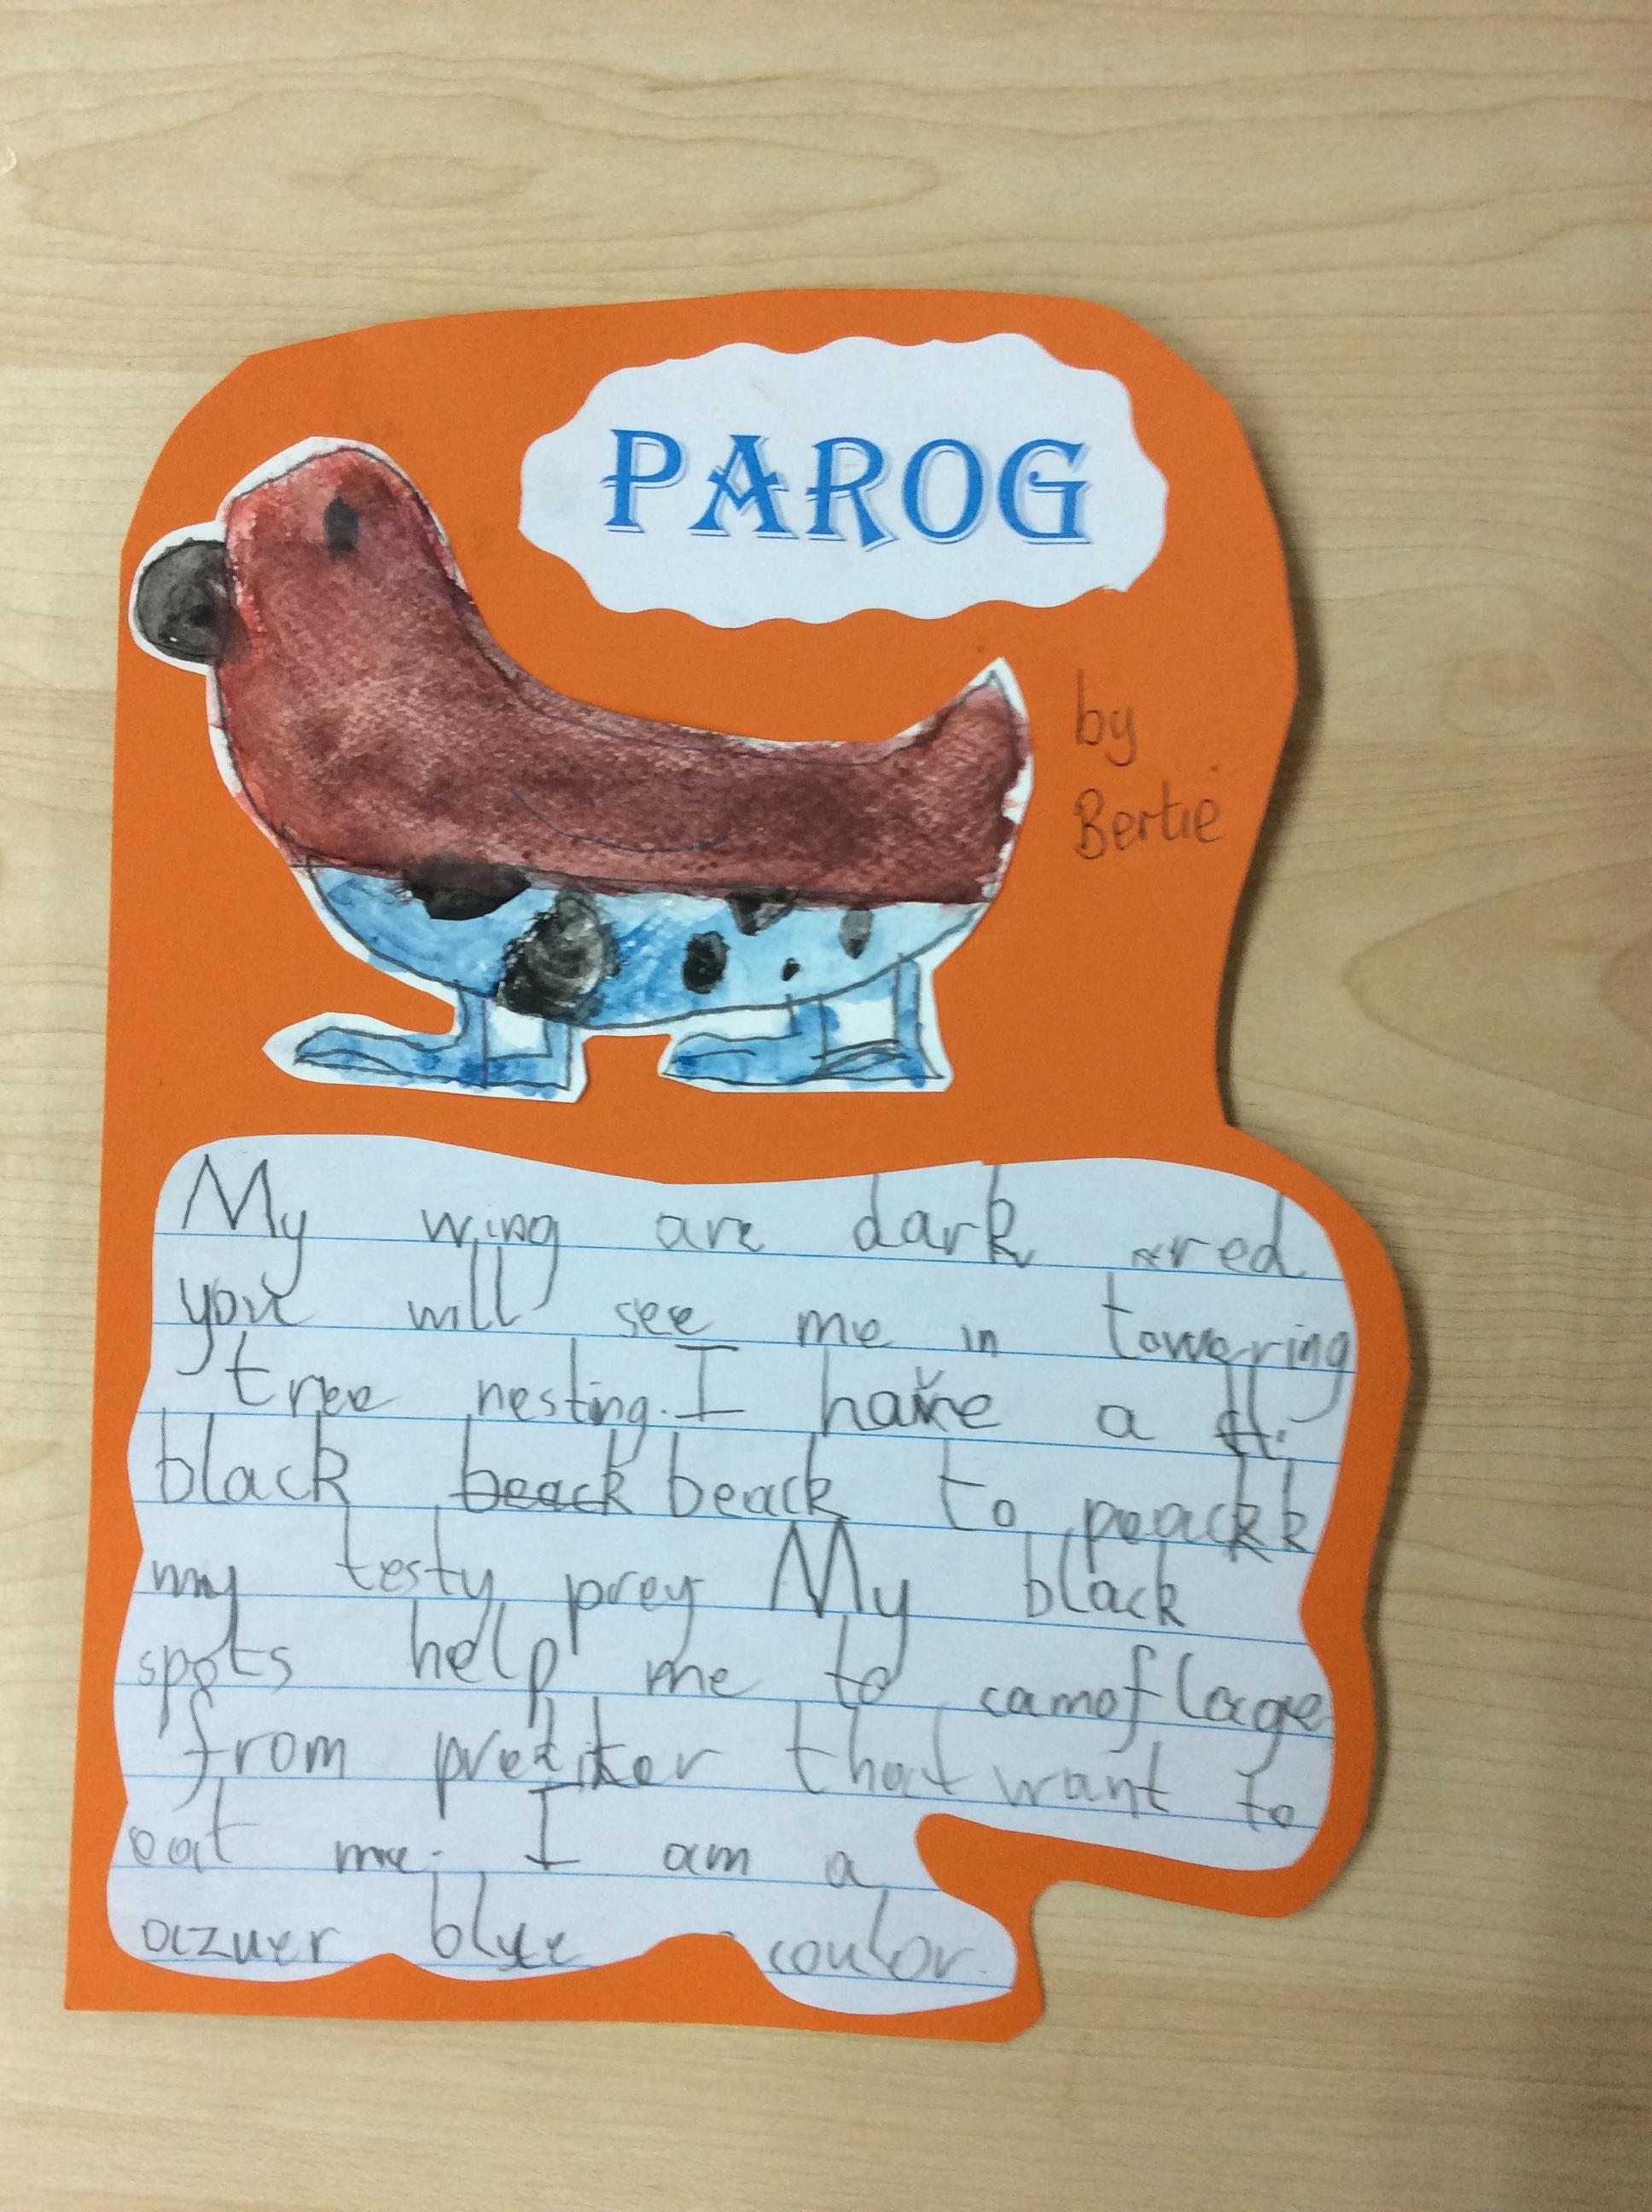 PAROG
by
Bertie
My wing are dark red
you will see me in towering
tree nesting. I have a
black beack beack to peackk
my testy prey My black
spots help me to camoflage
from prediter that want to
eat me. I am a
azuer blue coulor.